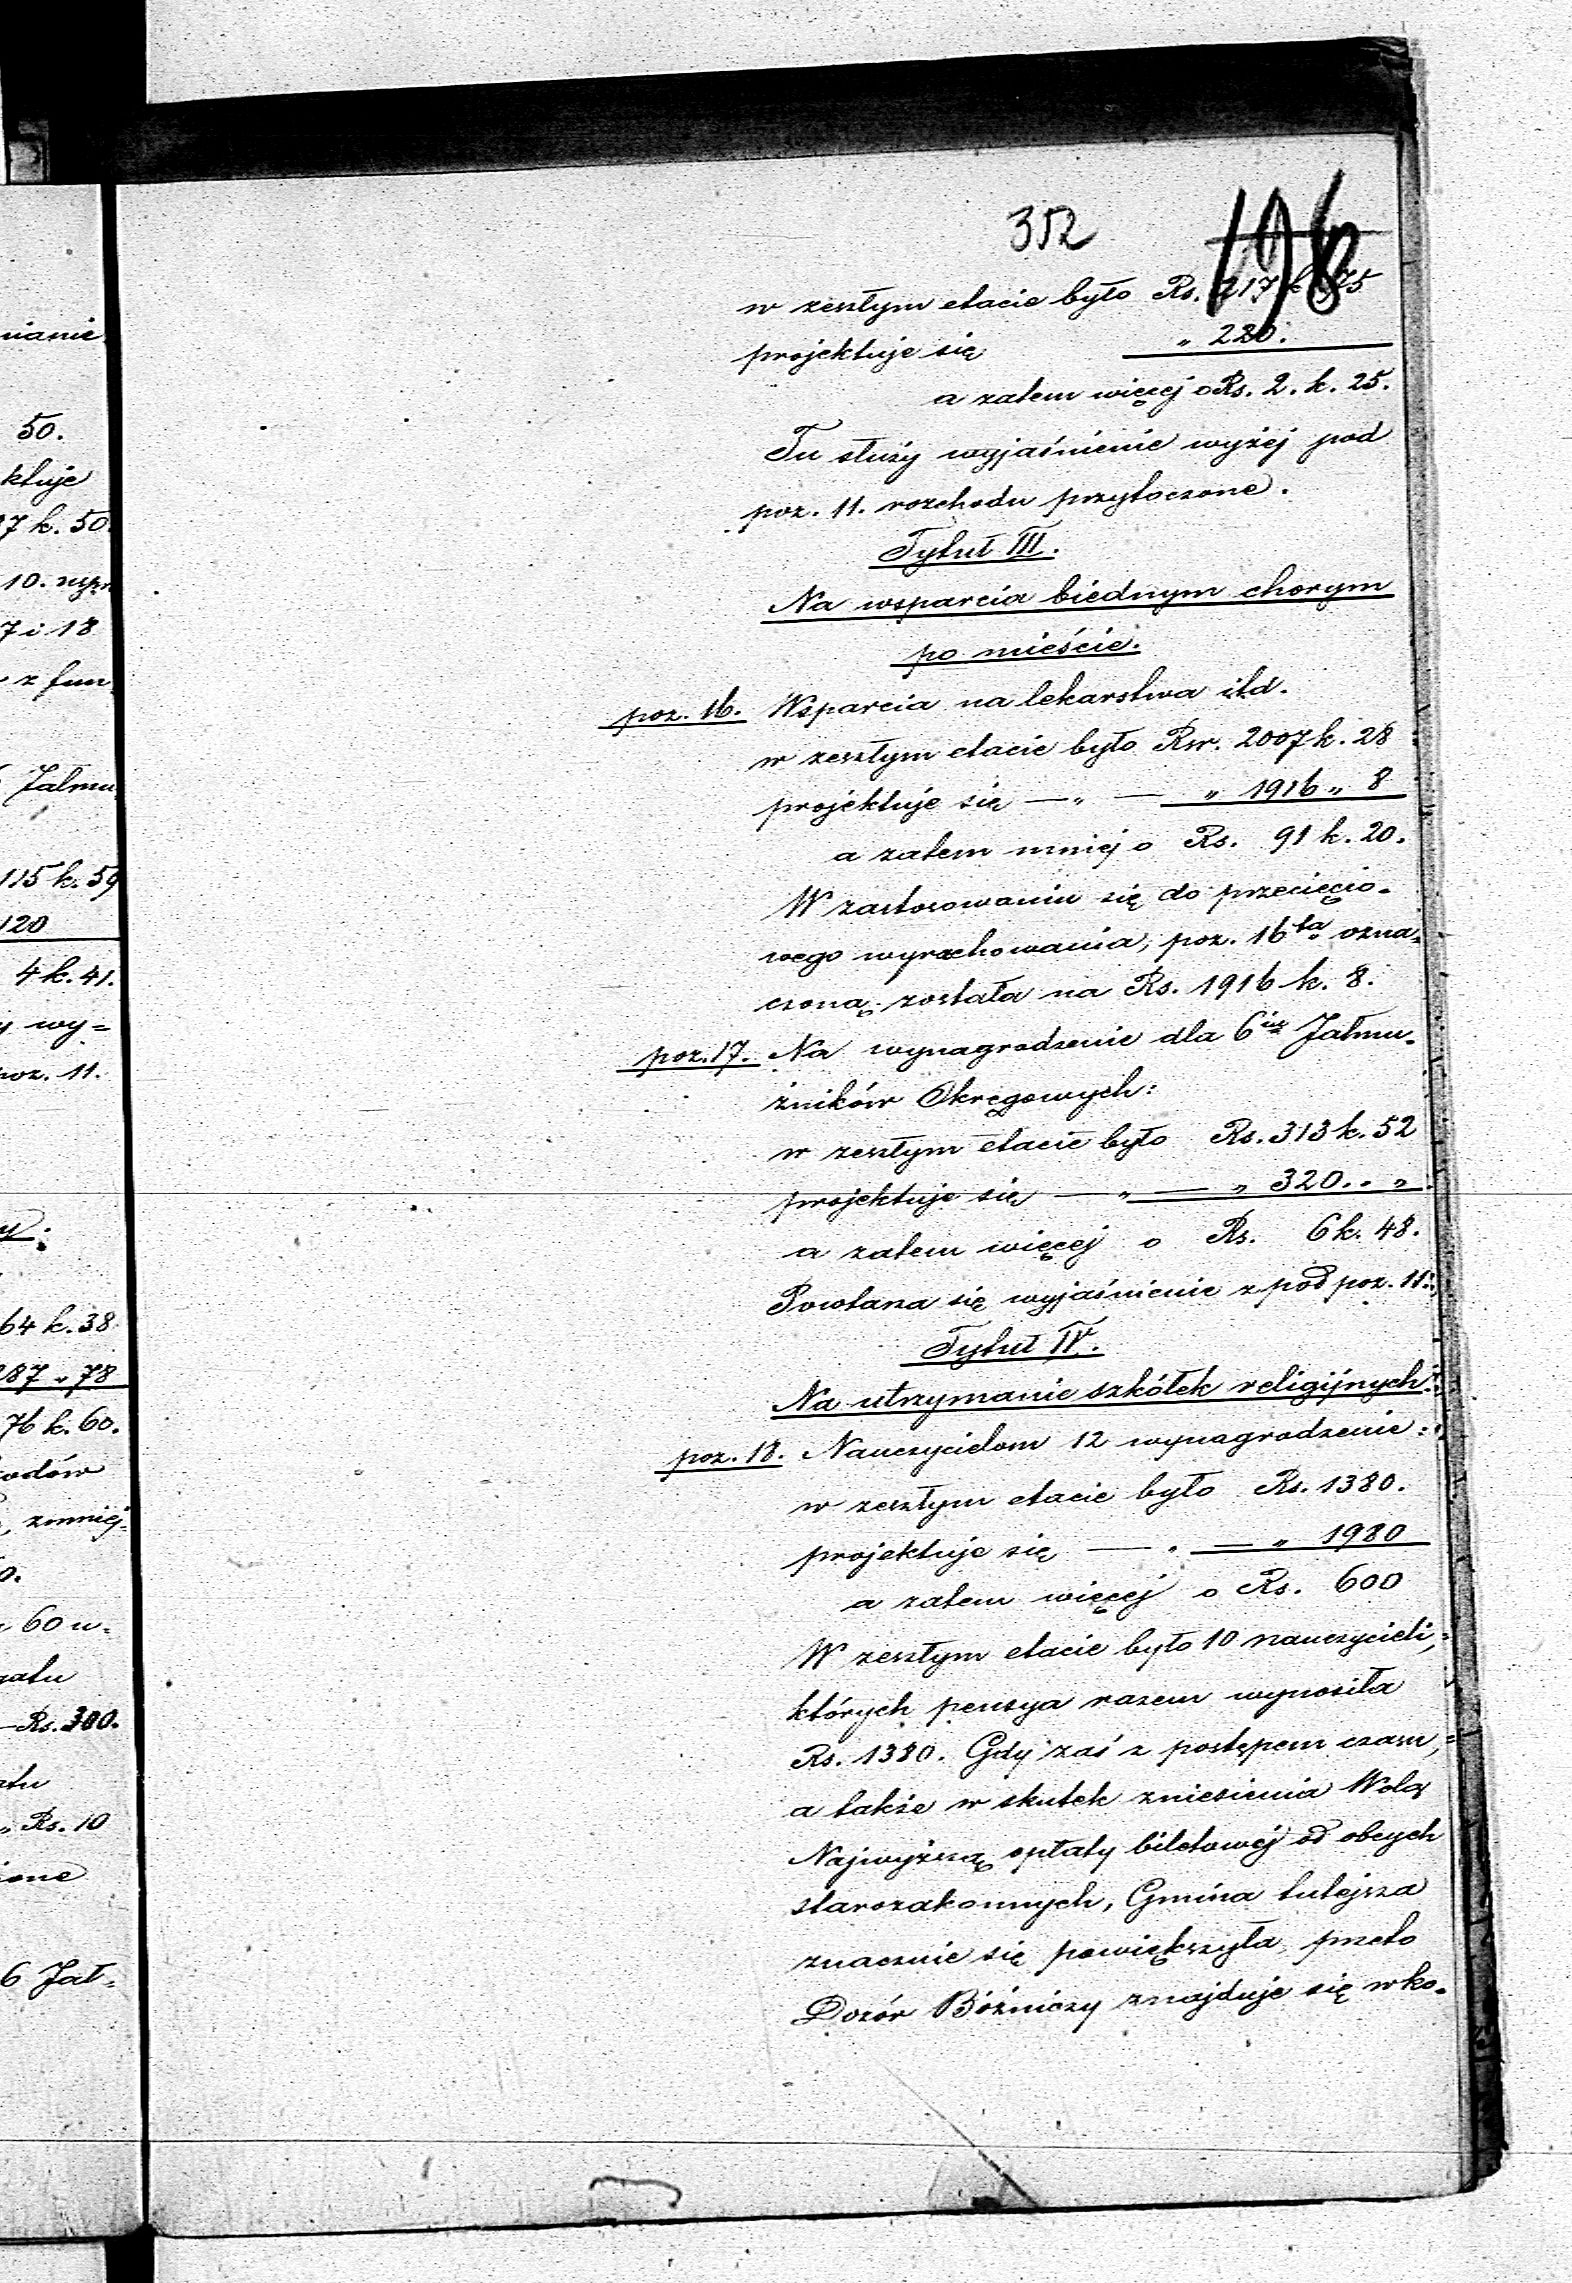 nianie
50.
ktuje
7 k. 50.
10. wyr
7 i 18
z fun
Jałmu
115 k. 59
120
4 k. 41.
wy=
poz. 11.
64 k. 38
287 „ 78
76 k. 60.
hodów
zmniej=
0.
60 u=
Rs. 300.
„ Rs. 10
ione
6 Jał=
352
198
w zeszłym etacie było Rs. 217 k. 75
projektuje się „ 220.
a zatem więcej o Rs. 2. k. 25.
Tu służy wyjaśnienie wyżej pod
poz. 11. rozchodu przytoczone.
Tytuł III.
Na wsparcia biednym chorym
po mieście.
poz. 16. Wsparcia na lekarstwa itd.
w zeszłym etacie było Rsr. 2007 k. 28
projektuje się — „ — „ 1916 „ 8
a zatem mniej o Rs. 91 k. 20.
W zastosowaniu się do przecięcio=
wego wyrachowania, poz. 16ta ozna=
czoną została na Rs. 1916 k. 8.
poz. 17. Na wynagrodzenie dla 6iu Jałmu=
żników Okręgowych:
w zeszłym etacie było Rs. 313 k. 52
projektuje się — „ — „ 320 . . „
a zatem więcej o Rs. 6 k. 48.
Powtarza się wyjaśnienie z pod poz. 11.
Tytuł IV.
Na utrzymanie szkółek religijnych:
poz. 18. Nauczycielom 12 wynagrodzenie:
w zeszłym etacie było Rs. 1380.
projektuje się — „ — „ 1980
a zatem więcej o Rs. 600
W zeszłym etacie było 10 nauczycieli,
których pensya razem wynosiła
Rs. 1380. Gdy zaś z postępem czasu,
a także w skutek zniesienia Wolą
Najwyższą opłaty biletowej od obcych
starozakonnych, Gmina tutejsza
znacznie się powiększyła, przeto
Dozór Bóżniczy znajduje się w ko=